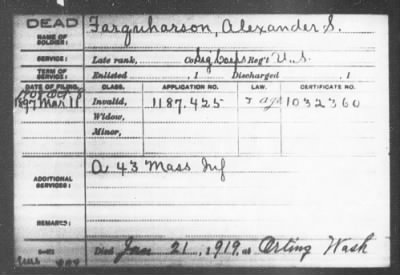 DEAD
NAME OF SOLDIER: Farquharson, Alexander S.
SERVICE: Late rank, Co Sig Corps Reg't U.S.
TERM OF SERVICE: Enlisted , 1 Discharged , 1
DATE OF FILING. CLASS. APPLICATION NO. LAW. CERTIFICATE NO.
1897 Mar 11 Invalid, 1187.425 1032360
Widow,
Minor,
ADDITIONAL SERVICES: A 43 Mass Inf
REMARKS:
Died Jan 21, 1919, at Orting Wash